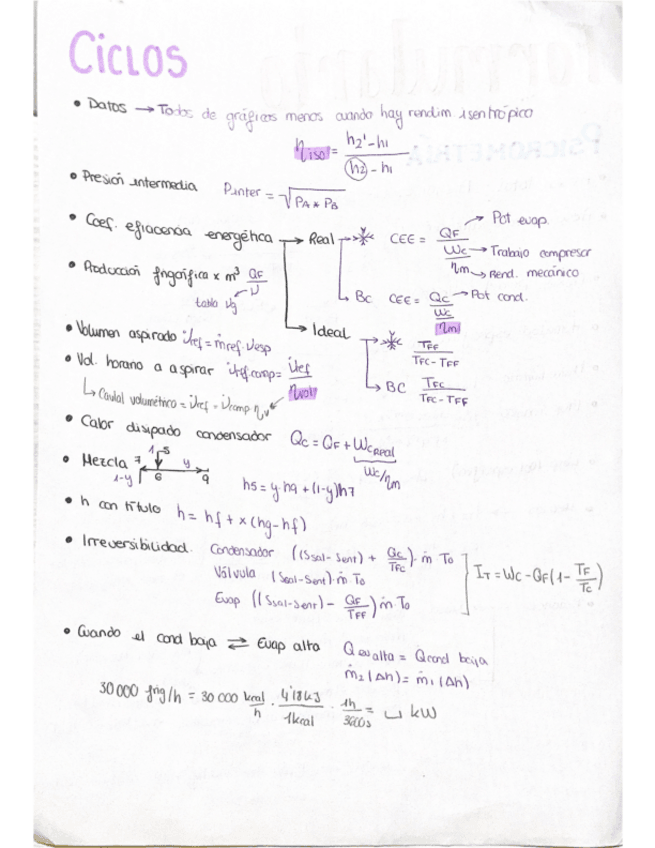 Ciclos
• Datos → Todos de gráficas menos cuando hay rendim isentrópico
η iso = (h2' - h1) / (h2 - h1)
• Presión intermedia P inter = √(PA * PB)
• Coef. eficiencia energética → Real → CEE = QF / (Wc / ηm) → Pot evap.
→ Trabajo compresor
→ Rend. mecánico
• Producción frigorífica x m³ QF / V
tabla vg
BC CEE = Qc / (Wc / ηm) → Pot cond.
→ Ideal → TFF / (TFC - TFF)
→ BC TFC / (TFC - TFF)
• Volumen aspirado V̇ref = ṁref · vesp
• Vol. horario a aspirar V̇ref comp = V̇ref / ηvol
↳ Caudal volumétrico = V̇ref = V̇comp ηv
• Calor disipado condensador Qc = QF + Wc real
Wc/ηm
• Mezcla 7 1 5 y 1-y 6 9
h5 = y h9 + (1-y) h7
• h con título h = hf + x (hg - hf)
• Irreversibilidad. Condensador ((Ssal - Sent) + Qc / TFC) · ṁ T0
Válvula (Ssal - Sent) · ṁ T0
Evap ((Ssal - Sent) - QF / TFF) ṁ T0
IT = Wc - QF (1 - TF / Tc)
• Cuando el cond baja ⇄ Evap alta Q ev alta = Q cond baja
ṁ2 (Δh) = ṁ1 (Δh)
30 000 frig/h = 30 000 kcal / h · 4'18 KJ / 1 kcal · 1h / 3600s = ⊔ kW